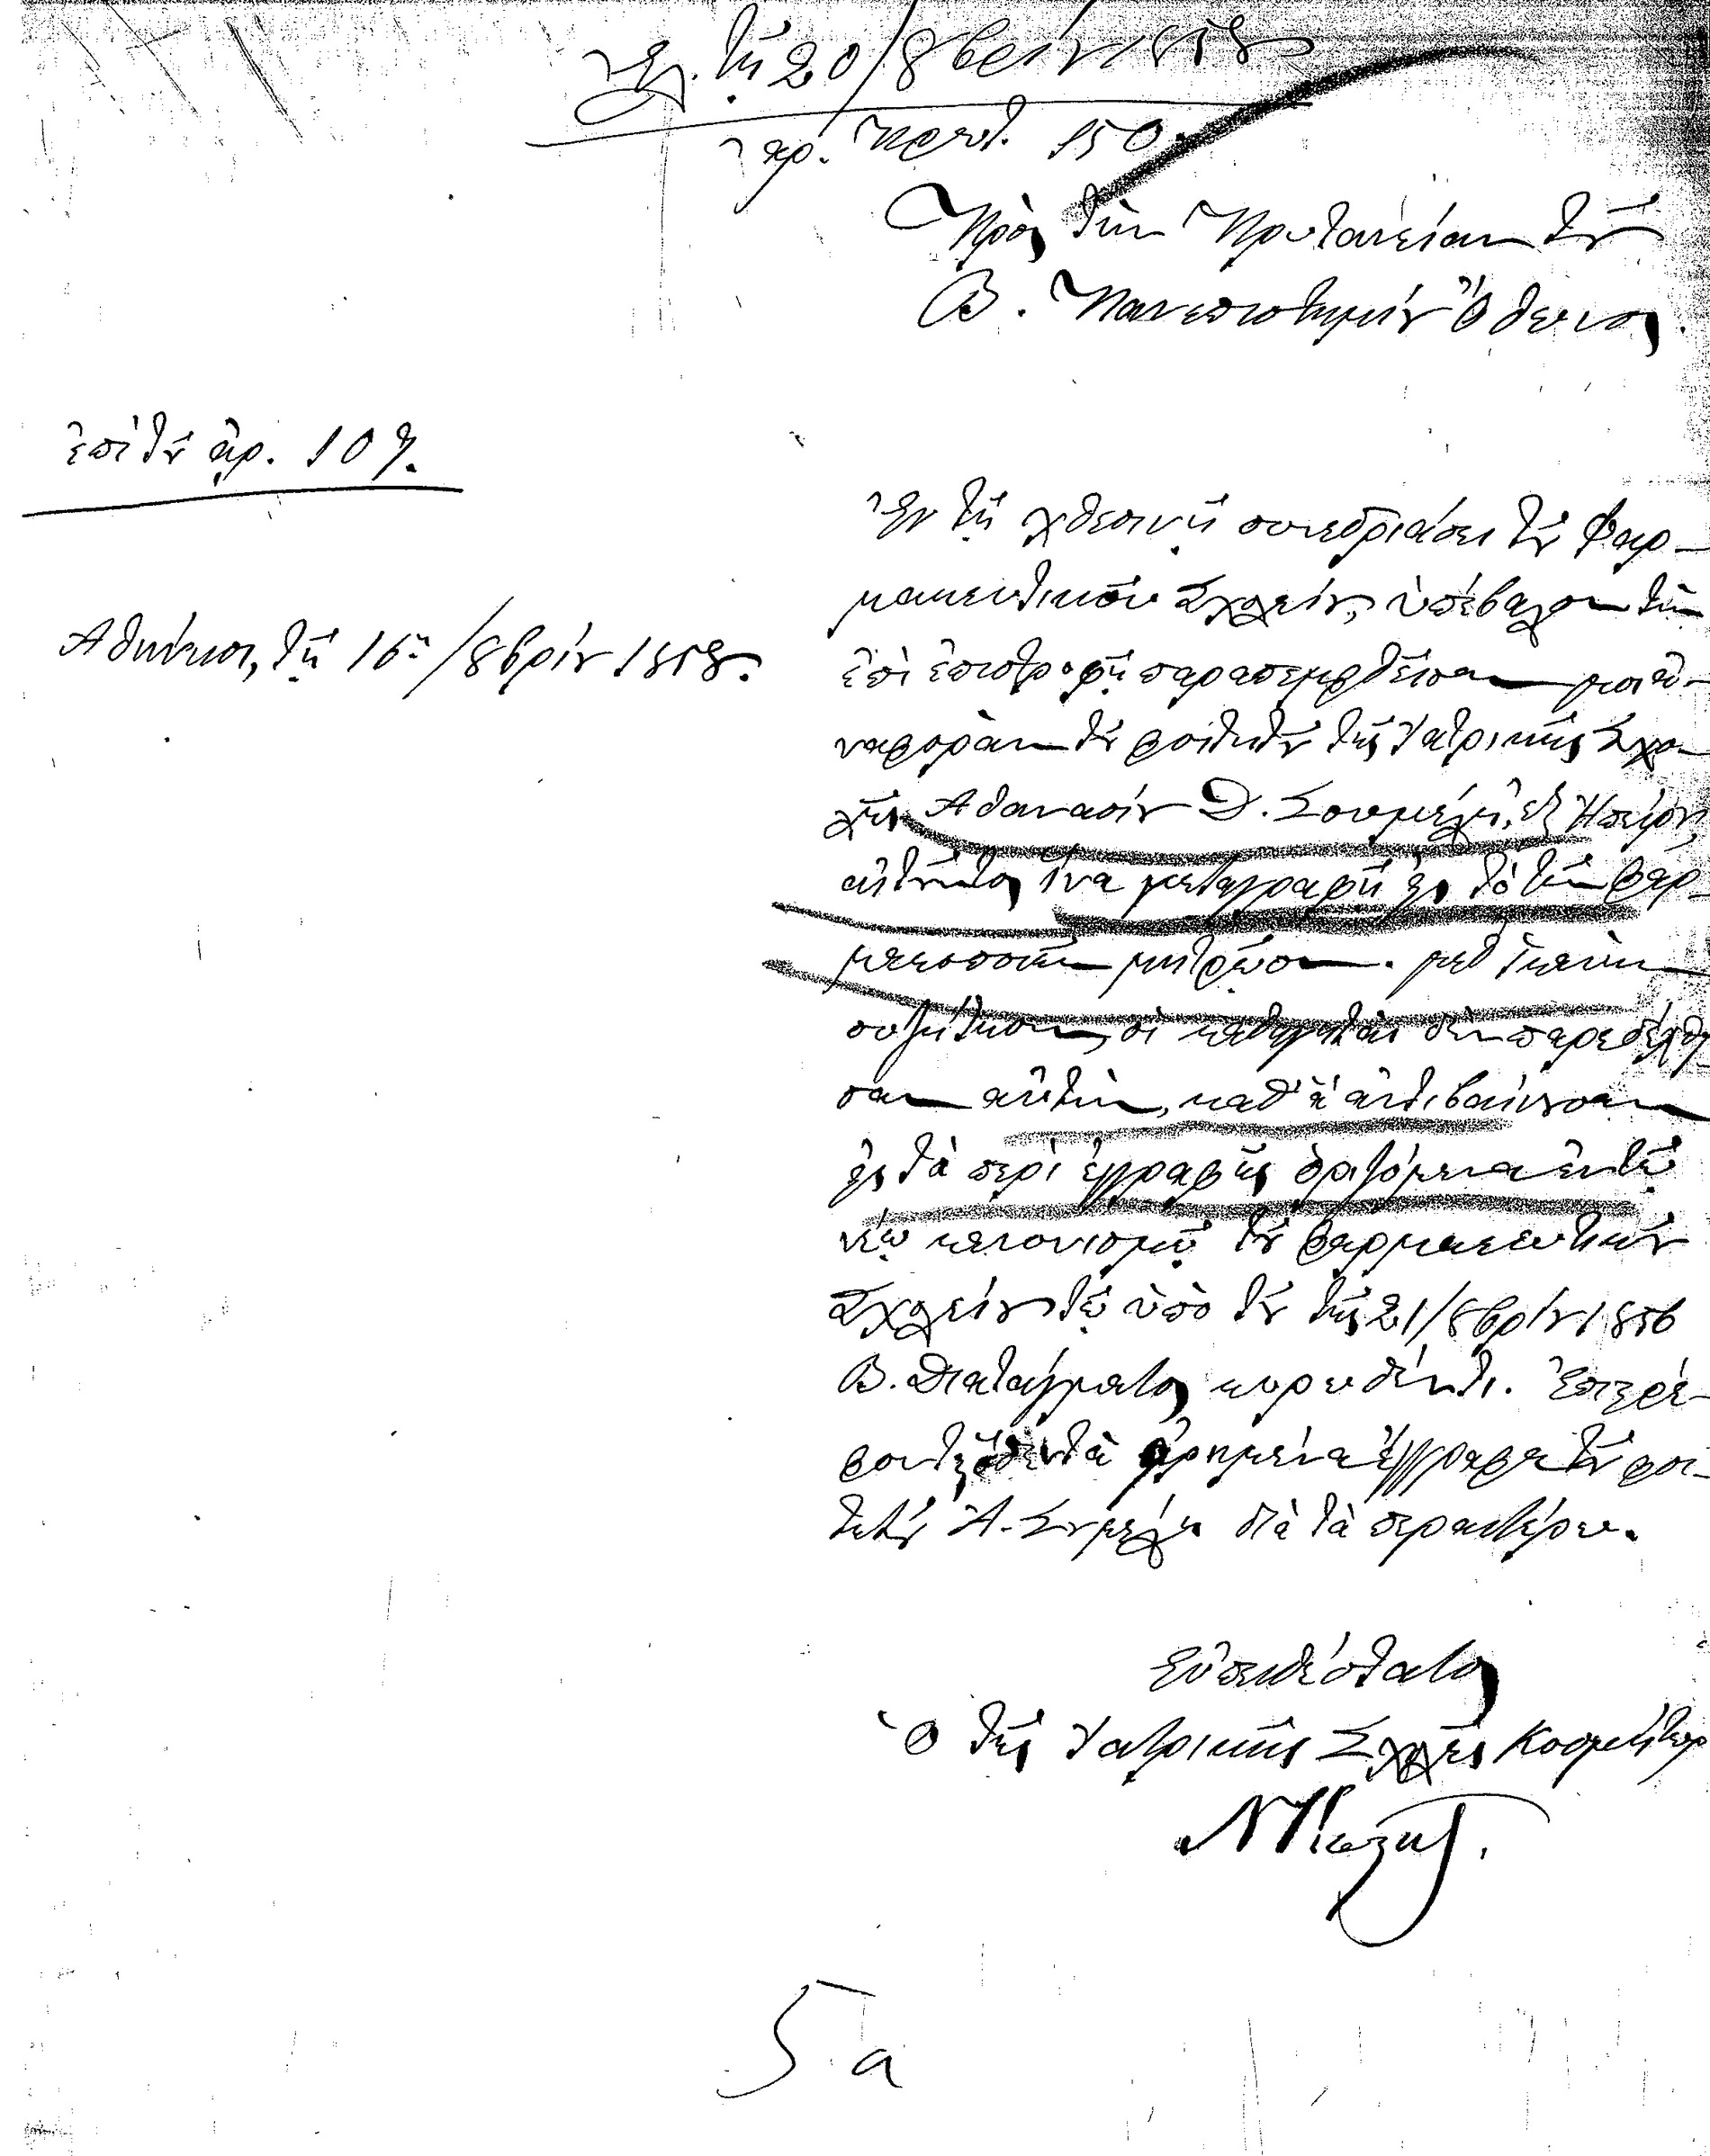 τῇ 20/8βρίου 1858
ἀρ. πρωτ. 150.
Πρὸς τὴν Πρυτανείαν τοῦ
Β. Πανεπιστημίου Ὄθωνος.
ἐπὶ τοῦ ἀρ. 107.
Ἀθήνησι, τῇ 16ῃ/8βρίου 1858.
Ἐν τῇ χθεσινῇ συνεδριάσει τοῦ Φαρ-
μακευτικοῦ Σχολείου, ὑπέβαλον τὴν
ἐπὶ ἐπιστροφῇ παραπεμφθεῖσαν μοι ἀ-
ναφορὰν τοῦ φοιτητοῦ τῆς Ἰατρικῆς Σχο-
λῆς Ἀθανασίου Δ. Σουμέλη, ἐξ Ἠπείρου,
αἰτοῦντος ἵνα μεταγραφῇ εἰς τὸ τῶν φαρ-
μακοποιῶν μητρῷον. μεθ' ἱκανὴν
συζήτησιν, οἱ καθηγηταὶ δὲν παρεδέχθη
σαν αὐτὴν, καθ' ἃ ἀντιβαίνουσαν
εἰς τὰ περὶ ἐγγραφῆς ὁριζόμενα ἐν τῷ
νέῳ κανονισμῷ τοῦ φαρμακευτικοῦ
Σχολείου τῷ ὑπὸ τοῦ τῆς 21/8βρίου 1856
Β. Διατάγματος κυρωθέντι. Ἐπιστρέ-
φονται τὰ εἰρημένα ἔγγραφα τοῦ φοι-
τητοῦ Ἀ. Σουμέλη διὰ τὰ περαιτέρω.
Εὐπειθέστατος
Ὁ τῆς Ἰατρικῆς Σχολῆς Κοσμήτωρ
Ν Κωστῆς.
5 α